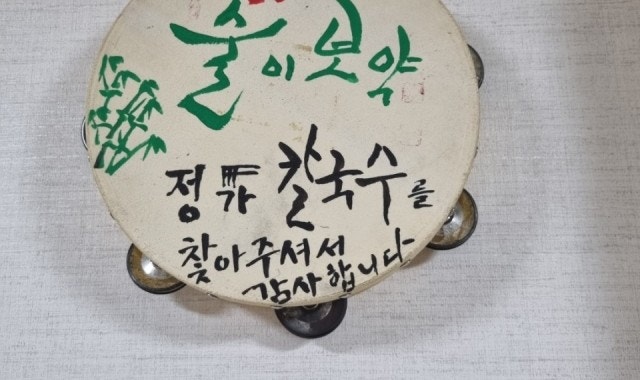 술이보약
칼국수를
찾아주셔서
감사합니다